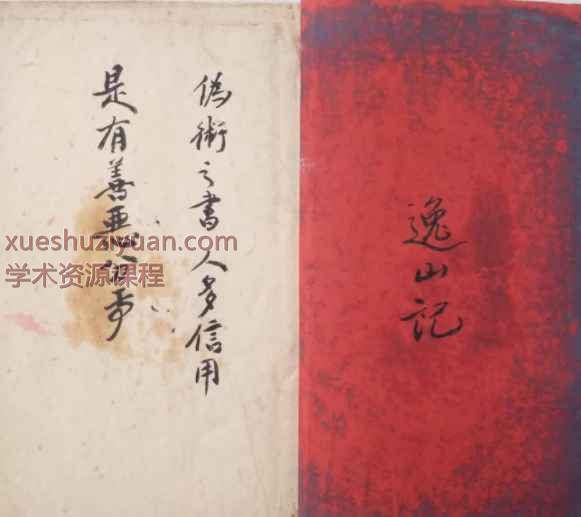 逸山記
偽術之書人多信用
是有善惡
xueshuziyuan.com
学术资源课程